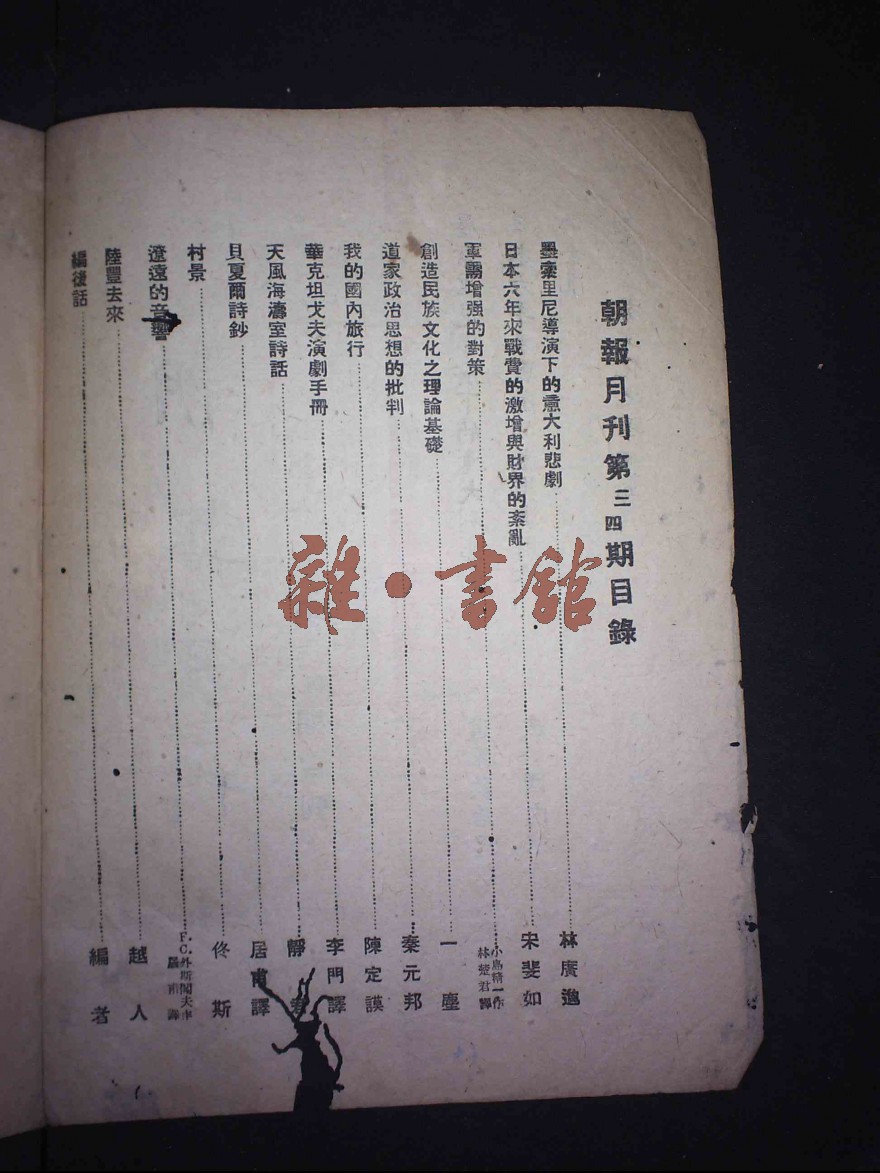 朝報月刊第三四期目錄
墨索里尼導演下的意大利悲劇 林廣
日本六年來戰費的激增與財界的紊亂 宋斐如
軍需增强的對策 小島精一作 林楚君譯
創造民族文化之理論基礎 一塵
道家政治思想的批判 秦元邦
我的國內旅行 陳定謨
華克坦戈夫演劇手冊 李門譯
天風海濤室詩話 靜君
貝夏爾詩鈔 居甫譯
村景 佟斯
遼遠的音響 F.C.外斯閣夫作 譯
陸豐去來 越人
編後話 編者
雜·書館